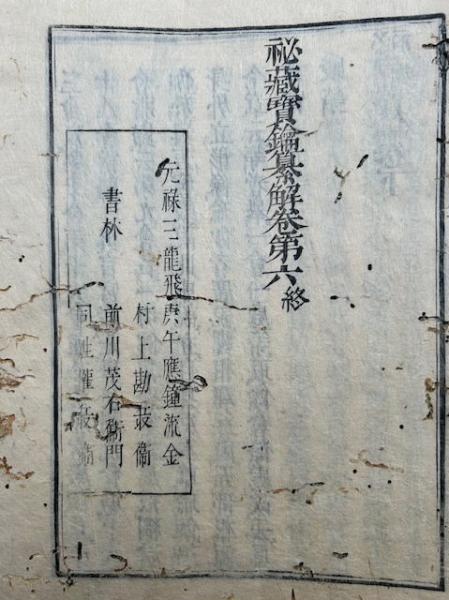 祕藏寶鑰纂解卷第六終
元祿三龍飛庚午應鐘流金
村上勘兵衛
書林 前川茂右衛門
同姓權兵衛